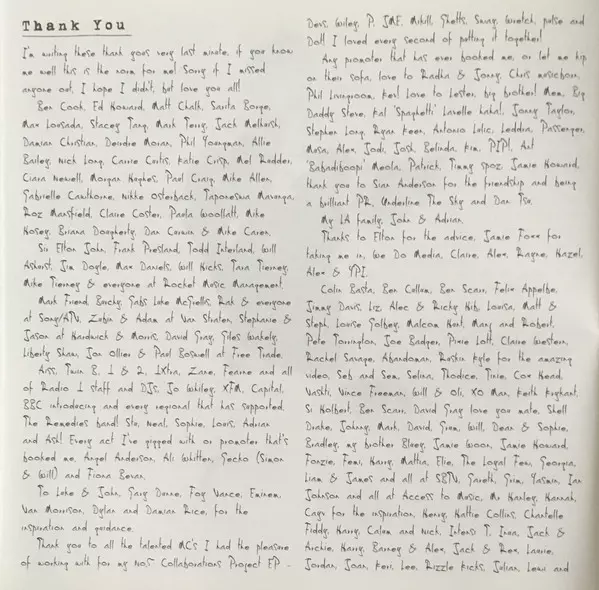 Thank You
I'm writing these thank yous very last minute, if you know
me well this is the norm for me! Sorry if I missed
anyone out, I hope I didn't, but love you all!
Ben Cook, Ed Howard, Matt Chalk, Sarita Borge,
Max Lousada, Stacey Tang, Mark Terry, Jack Melhuish,
Damian Christian, Deirdre Moran, Phil Youngman, Allie
Bailey, Nick Long, Carrie Curtis, Katie Crisp, Mel Rudder,
Ciara Newell, Morgan Hughes, Paul Craig, Mike Allen,
Gabrielle Cawthorne, Nikke Osterback, Taponeswa Mavunga,
Roz Mansfield, Claire Coster, Paola Woollatt, Mike
Hosey, Briana Dougherty, Dan Corwin & Mike Caren.
Sir Elton John, Frank Presland, Todd Interland, Will
Ashurst, Jim Doyle, Max Daniels, Will Hicks, Tara Tierney,
Mike Tierney & everyone at Rocket Music Management.
Mark Friend, Brucky, Gabs, Luke McGrellis, Rak & everyone
at Sony/ATV, Zubin & Adam at Van Straten, Stephanie &
Jason at Hardwick & Morris, David Gray, Giles Wakely,
Liberty Shaw, Jon Ollier & Paul Boswell at Free Trade.
Aiss, Twin B, 1 & 2, 1Xtra, Zane, Fearne and all
of Radio 1 staff and DJs, Jo Whiley, XFM, Capital,
BBC introducing and every regional that has supported.
The Remedies band! Stu, Neal, Sophie, Louis, Adrian
and Ash! Every act I've gigged with or promoter that's
booked me, Angel Anderson, Ali Whitten, Gecko (Simon
& Will) and Fiona Bevan.
To Luke & John, Gary Dunne, Foy Vance, Eminem,
Van Morrison, Dylan and Damian Rice, for the
inspiration and guidance.
Thank you to all the talented MC's I had the pleasure
of working with for my No.5 Collaborations Project EP -
Devs, Wiley, P, JME, Mikill, Ghetts, Sway, Wretch, pulse and
Dot! I loved every second of putting it together!
Any promoter that has ever booked me, or let me kip
on their sofa, love to Radha & Jonny, Chris musicborn,
Phil Livingroom, Kev! Love to Lester, big brother! Mem, Big
Daddy Steve, Kal 'Spaghetti' Lavelle haha!, Jonny Taylor,
Stephen Long, Ryan Keen, Antonio Lulic, Leddra, Passenger,
Mosa, Alex, Jodi, Josh, Belinda, Kim, PIP!, Ant
'Babadiboopi' Meola, Patrick, Timmy spoz, Jamie Howard,
thank you to Sian Anderson for the friendship and being
a brilliant PR, Underline The Sky and Dan Tsu.
My LA family, John & Adrian.
Thanks to Elton for the advice, Jamie Foxx for
taking me in, We Do Media, Claire, Alex, Rayne, Hazel,
Alex & YPI.
Colin Basta, Ben Cullum, Ben Scarr, Felix Appelbe,
Jimmy Davis, Liz, Alec & Ricky Hib, Louisa, Matt &
Steph, Louise Golbey, Malcom Hunt, Mary and Robert,
Pete Torrington, Joe Badger, Pixie Lott, Claire Western,
Rachel Savage, Abandoman, Ruskin Kyle for the amazing
video, Seb and Sem, Selina, Thodice, Tinie, Cox Head,
Vashti, Vince Freeman, Will & Oli, XO Man, Keith
Si Hulbert, Ben Scarr, David Gray love you mate, Shell
Drake, Johnny, Mark, David, Grum, Will, Dean & Sophie,
Bradley, my brother Bluey, Jamie Woon, Jamie Howard,
Fonzie, Femi, Harry, Mattia, Elie, The Loyal Few, Georgia,
Liam & James and all at SBTV, Gareth, Grim, Yasmin, Ian
Johnson and all at Access to Music, Mr Hanley, Hannah,
Cayo for the inspiration, Henry, Hattie Collins, Chantelle
Fiddy, Harry, Calum and Nick, Intensi T, Inua, Jack &
Archie, Harry, Barney & Alex, Jack & Rex, Laurie,
Jordan, Joan, Keri, Lee, Rizzle Kicks, Julian, Lewi and